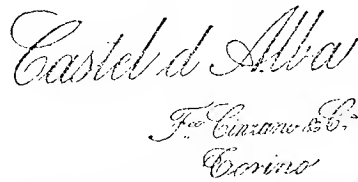 Castel d Alba
F.co Cinzano & C.
Torino